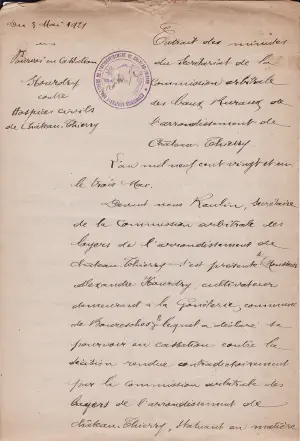 Du 3 Mai 1921
Pourvoi en Cassation
Hourdry
contre
Hospices civils
de Château-Thierry
Extrait des minutes
du Secrétariat de la
Commission arbitrale
des Baux Ruraux de
l'arrondissement de
Château Thierry
L'an mil neuf cent vingt et un
le trois Mai
Devant nous Raulin, Secrétaire
de la Commission arbitrale des
loyers de l'arrondissement de
Château-Thierry s'est présenté Monsieur
Alexandre Hourdry cultivateur
demeurant à la commune
de Bouresches lequel a déclaré se
pourvoir en cassation contre la
décision rendue contradictoirement
par la commission arbitrale des
loyers de l'arrondissement de
Château-Thierry, statuant en matière